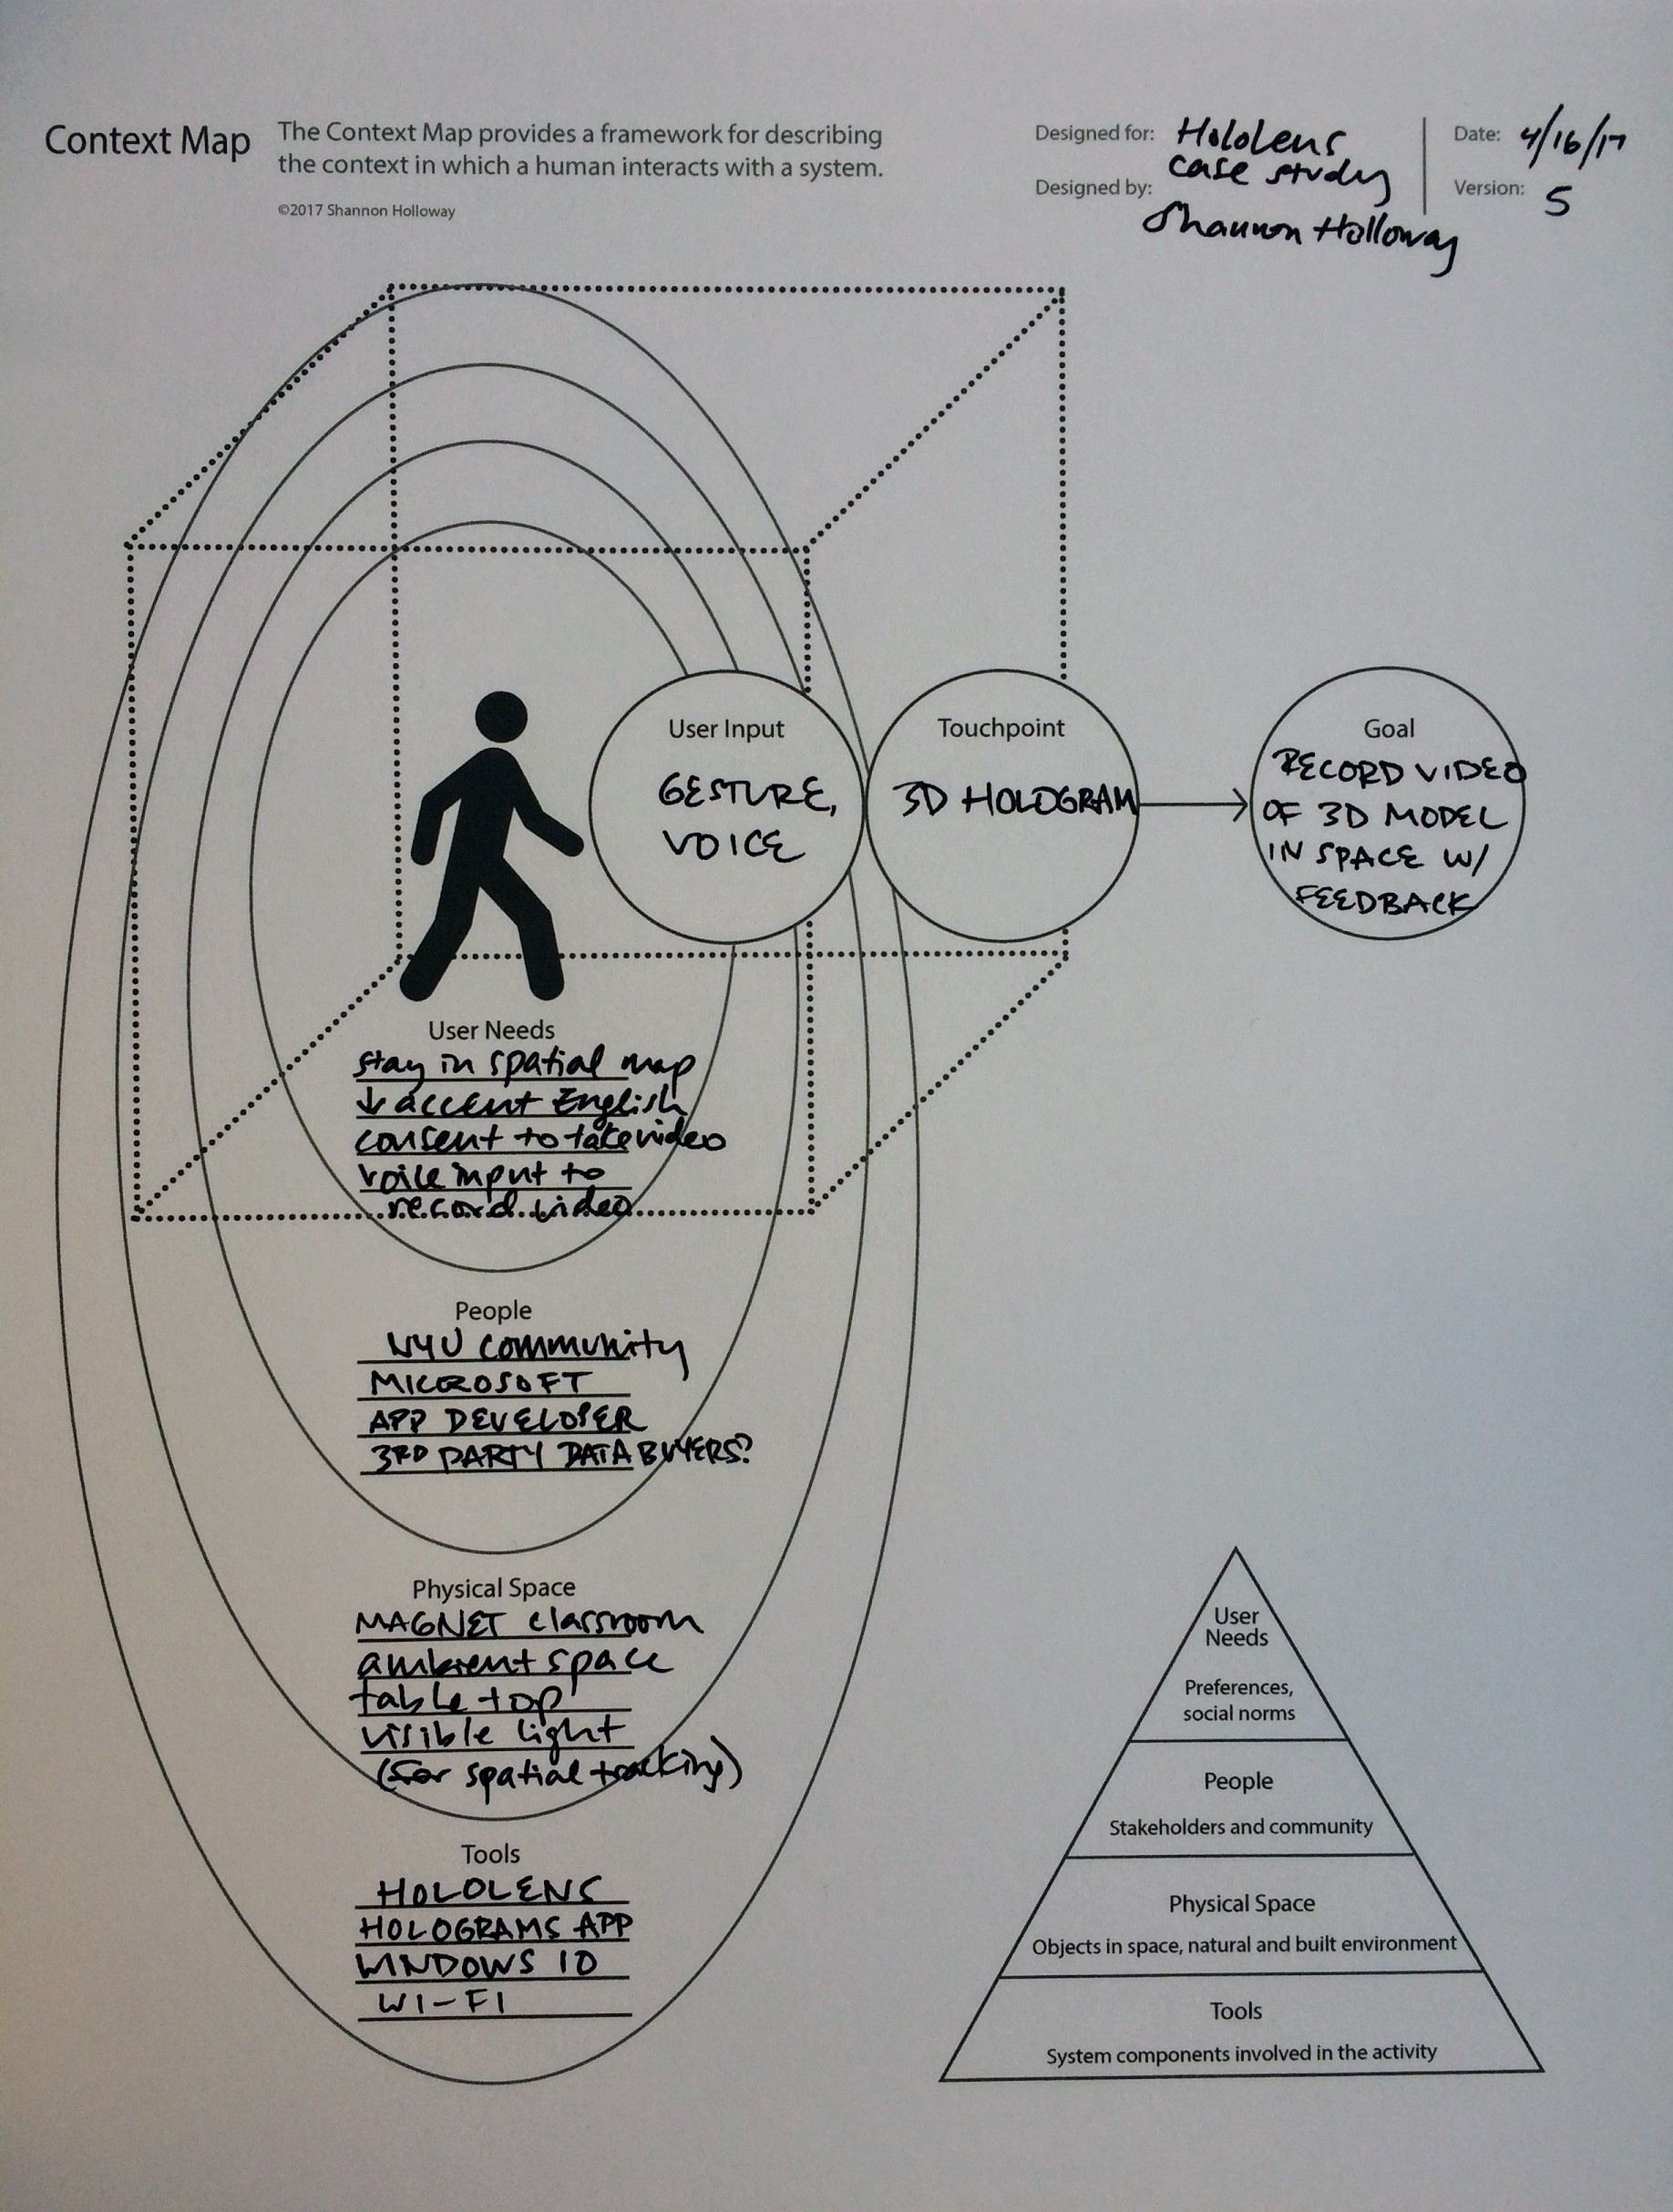 Context Map
The Context Map provides a framework for describing
the context in which a human interacts with a system.
©2017 Shannon Holloway
Designed for: Hololens
case study
Designed by:
Shannon Holloway
Date: 4/16/17
Version: 5
User Input
GESTURE,
VOICE
Touchpoint
3D HOLOGRAM
Goal
RECORD VIDEO
OF 3D MODEL
IN SPACE W/
FEEDBACK
User Needs
stay in spatial map
↓ accent English
consent to take video
voice input to
record video
People
NYU community
MICROSOFT
APP DEVELOPER
3RD PARTY DATA BUYERS?
Physical Space
MAGNET classroom
ambient space
table top
visible light
(for spatial tracking)
Tools
HOLOLENS
HOLOGRAMS APP
WINDOWS 10
WI-FI
User
Needs
Preferences,
social norms
People
Stakeholders and community
Physical Space
Objects in space, natural and built environment
Tools
System components involved in the activity